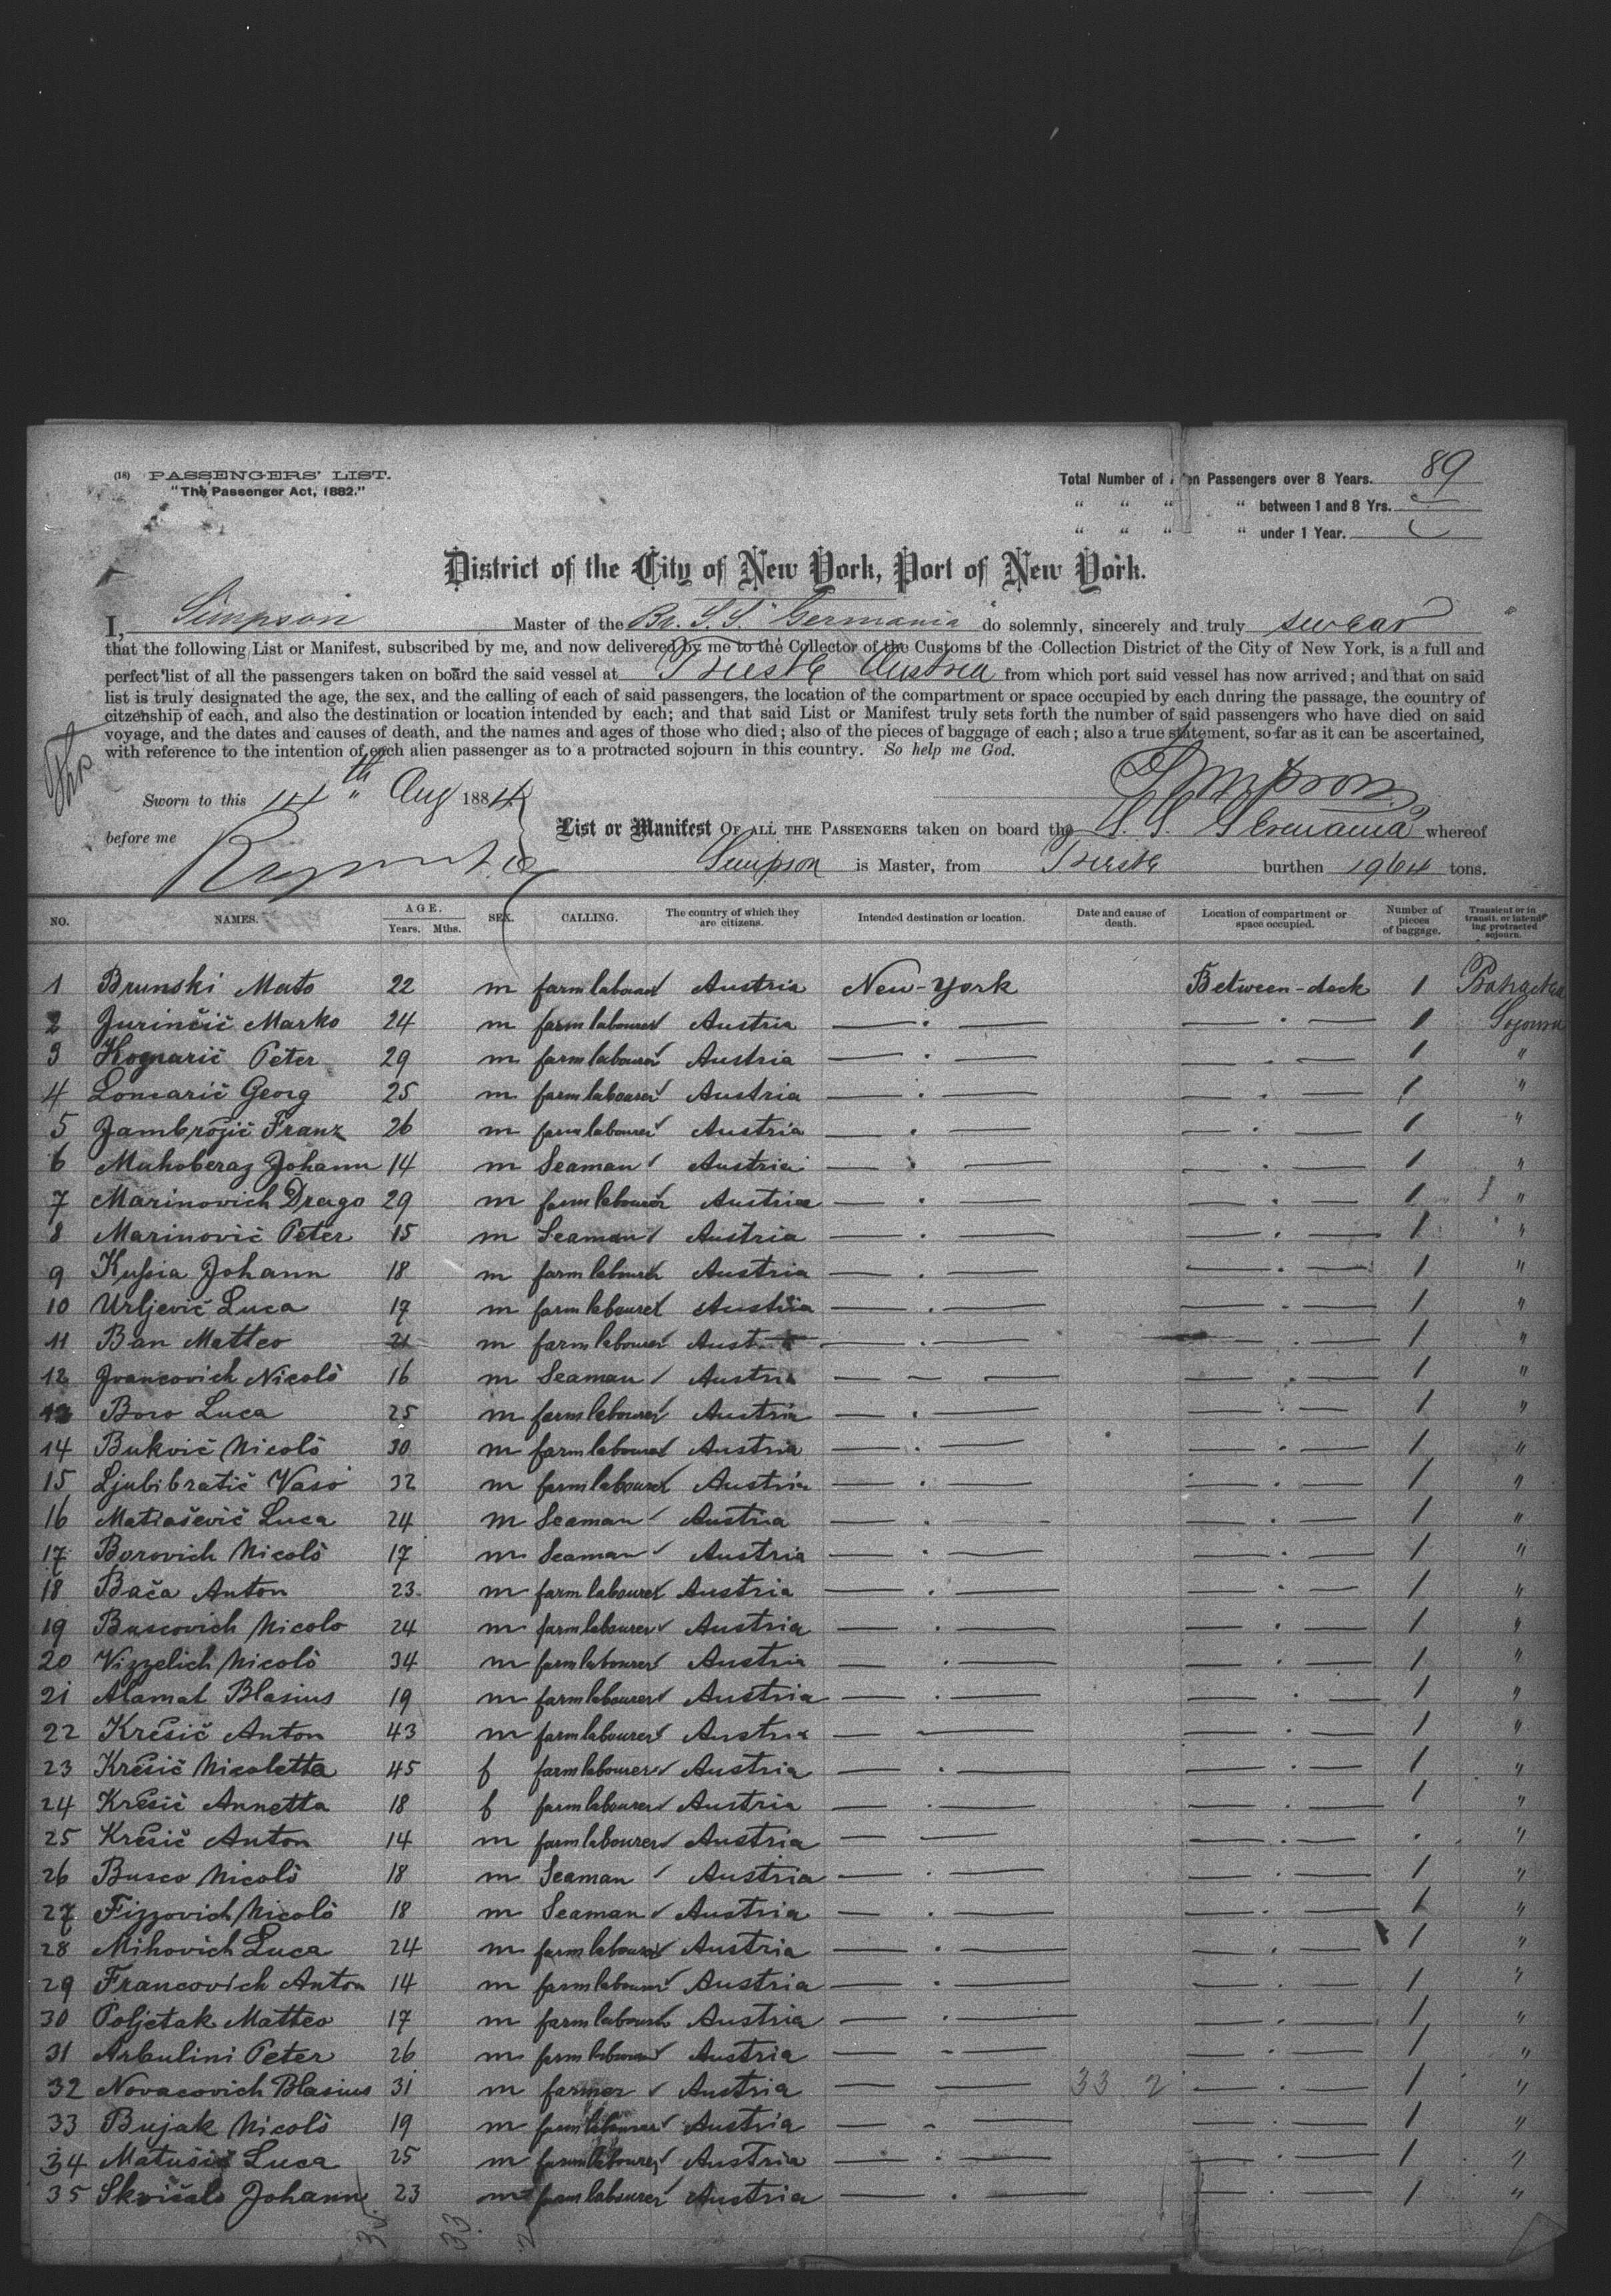 (18) PASSENGERS' LIST.
"The Passenger Act, 1882."
Total Number of Passengers over 8 Years. 89
" " " " between 1 and 8 Yrs.
" " " " under 1 Year.
District of the City of New York, Port of New York.
I, Simpson Master of the Br. S.S. "Germania" do solemnly, sincerely and truly swear
that the following List or Manifest, subscribed by me, and now delivered by me to the Collector of the Customs of the Collection District of the City of New York, is a full and
perfect list of all the passengers taken on board the said vessel at Trieste Austria from which port said vessel has now arrived; and that on said
list is truly designated the age, the sex, and the calling of each of said passengers, the location of the compartment or space occupied by each during the passage, the country of
citzenship of each, and also the destination or location intended by each; and that said List or Manifest truly sets forth the number of said passengers who have died on said
voyage, and the dates and causes of death, and the names and ages of those who died; also of the pieces of baggage of each; also a true statement, so far as it can be ascertained,
with reference to the intention of each alien passenger as to a protracted sojourn in this country. So help me God.
Simpson
Sworn to this 14th " Aug 1884
before me
List or Manifest OF ALL THE PASSENGERS taken on board the S.S. Germania whereof
Simpson is Master, from Trieste burthen 1964 tons.
NO. NAMES. AGE. Years. Mths. SEX. CALLING. The country of which they are citizens. Intended destination or location. Date and cause of death. Location of compartment or space occupied. Number of pieces of baggage. Transient or in transit, or intending protracted sojourn.
1 Brunski Mato 22 m farmlabourer Austria New-York Between-deck 1 Protracted
2 Jurinčič Marko 24 m farmlabourer Austria — . — — . — 1 Sojourn
3 Kognarič Peter 29 m farmlabourer Austria — . — — . — 1 "
4 Loncarič Georg 25 m farmlabourer Austria — . — — . — 1 "
5 Jambrožič Franz 26 m farmlabourer Austria — . — — . — 1 "
6 Muhoberaz Johann 14 m Seaman Austria — . — — . — 1 "
7 Marinovich Drago 29 m farmlabourer Austria — . — — . — 1 "
8 Marinovič Peter 15 m Seaman Austria — . — — . — 1 "
9 Johann 18 m farmlabourer Austria — . — — . — 1 "
10 Urljevič Luca 17 m farmlabourer Austria — . — — . — 1 "
11 Ban Matteo 21 m farmlabourer Aust — . — — . — 1 "
12 Ivancovich Nicolò 16 m Seaman Austria — — — — . — 1 "
13 Boro Luca 25 m farmlabourer Austria — . — — . — 1 "
14 Bukvič Nicolò 30 m farmlabourer Austria — . — — . — 1 "
15 Ljubibratič Vaso 32 m farmlabourer Austria — . — — . — 1 "
16 Matiašević Luca 24 m Seaman Austria — . — — . — 1 "
17 Borovich Nicolò 17 m Seaman Austria — . — — . — 1 "
18 Bača Anton 23 m farmlabourer Austria — . — — . — 1 "
19 Buscovich Nicolo 24 m farmlabourer Austria — . — — . — 1 "
20 Vizzelich Nicolò 34 m farmlabourer Austria — . — — . — 1 "
21 Alamat Blasius 19 m farmlabourer Austria — . — — . — 1 "
22 Kresič Anton 43 m farmlabourer Austria — . — — . — 1 "
23 Kresič Nicoletta 45 f farmlabourer Austria — . — — . — 1 "
24 Kresič Annetta 18 f farmlabourer Austria — . — — . — 1 "
25 Kresič Anton 14 m farmlabourer Austria — — — . — . "
26 Busco Nicolò 18 m Seaman Austria — . — — . — 1 "
27 Fizzovich Nicolò 18 m Seaman Austria — . — — . — 1 "
28 Mihovich Luca 24 m farmlabourer Austria — . — — . — 1 "
29 Francovich Anton 14 m farmlabourer Austria — . — — . — 1 "
30 Poljetak Matteo 17 m farmlabourer Austria — . — — . — 1 "
31 Arbulini Peter 26 m farmlabourer Austria — - — — . — 1 "
32 Novacovich Blasius 31 m farmer Austria — - — 33 2 — . — 1 "
33 Bujak Nicolò 19 m farmlabourer Austria — - — — . — 1 "
34 Matušič Luca 25 m farmlabourer Austria — . — — . — 1 "
35 Skvičalo Johann 23 m farmlabourer Austria — . — — . — 1 "
35 33 2